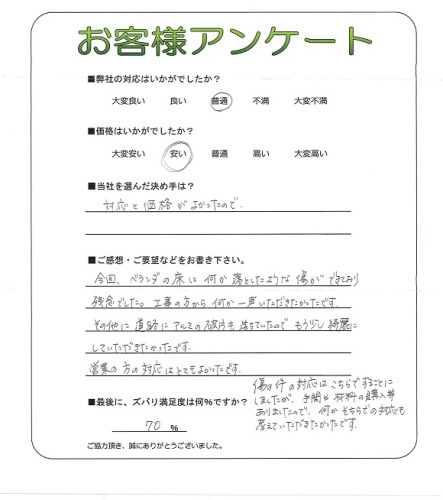 お客様アンケート
■弊社の対応はいかがでしたか？
大変良い 良い 普通 不満 大変不満
■価格はいかがでしたか？
大変安い 安い 普通 高い 大変高い
■当社を選んだ決め手は？
対応と価格がよかったので。
■ご感想・ご要望などをお書き下さい。
今回、ベランダの床に何か落としたような傷ができており
残念でした。工事の方から何か一声いただきたかったです。
その他に道路にアルミの破片も落ちていたのでもう少し綺麗に
していただきたかったです。
営業の方の対応はとてもよかったです。
傷の件の対応はこちらですることに
しましたが、手間や材料の購入等
ありましたので、何かそちらでの対応も
考えていただきたかったです。
■最後に、ズバリ満足度は何%ですか？
70 %
ご協力頂き、誠にありがとうございました。